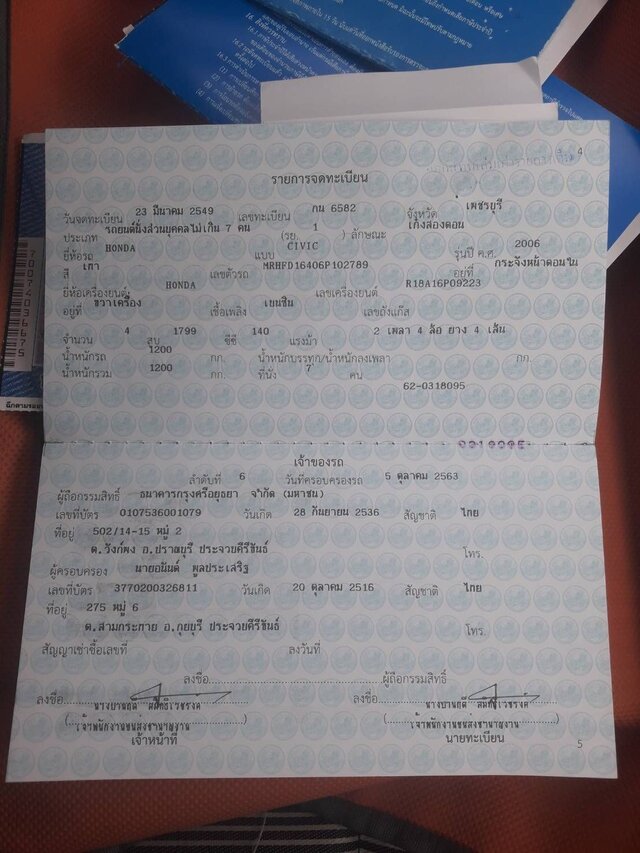 4
รายการจดทะเบียน
วันจดทะเบียน 23 มีนาคม 2549 เลขทะเบียน กน 6582 จังหวัด เพชรบุรี
ประเภท รถยนต์นั่งส่วนบุคคลไม่เกิน 7 คน (รย. 1 ) ลักษณะ เก๋งสองตอน
ยี่ห้อรถ HONDA แบบ CIVIC รุ่นปี ค.ศ. 2006
สี เทา เลขตัวรถ MRHFD16406P102789 อยู่ที่ กระจังหน้าตอนใน
ยี่ห้อเครื่องยนต์ HONDA เลขเครื่องยนต์ R18A16P09223
อยู่ที่ ขวาเครื่อง เชื้อเพลิง เบนซิน เลขถังแก๊ส
จำนวน 4 สูบ 1799 ซีซี 140 แรงม้า 2 เพลา 4 ล้อ ยาง 4 เส้น
น้ำหนักรถ 1200 กก. น้ำหนักบรรทุก/น้ำหนักลงเพลา กก.
น้ำหนักรวม 1200 กก. ที่นั่ง 7 คน
62-0318095
เจ้าของรถ
ลำดับที่ 6 วันที่ครอบครองรถ 5 ตุลาคม 2563
ผู้ถือกรรมสิทธิ์ ธนาคารกรุงศรีอยุธยา จำกัด (มหาชน)
เลขที่บัตร 0107536001079 วันเกิด 28 กันยายน 2536 สัญชาติ ไทย
ที่อยู่ 502/14-15 หมู่ 2
ต.วังก์พง อ.ปราณบุรี ประจวบคีรีขันธ์ โทร.
ผู้ครอบครอง นายอนันต์ พูลประเสริฐ
เลขที่บัตร 3770200326811 วันเกิด 20 ตุลาคม 2516 สัญชาติ ไทย
ที่อยู่ 275 หมู่ 6
ต.สามกระทาย อ.กุยบุรี ประจวบคีรีขันธ์ โทร.
สัญญาเช่าซื้อเลขที่ ลงวันที่
ลงชื่อ ผู้ถือกรรมสิทธิ์
ลงชื่อ ลงชื่อ
เจ้าพนักงานขนส่งชำนาญงาน เจ้าพนักงานขนส่งชำนาญงาน
เจ้าหน้าที่ นายทะเบียน
5